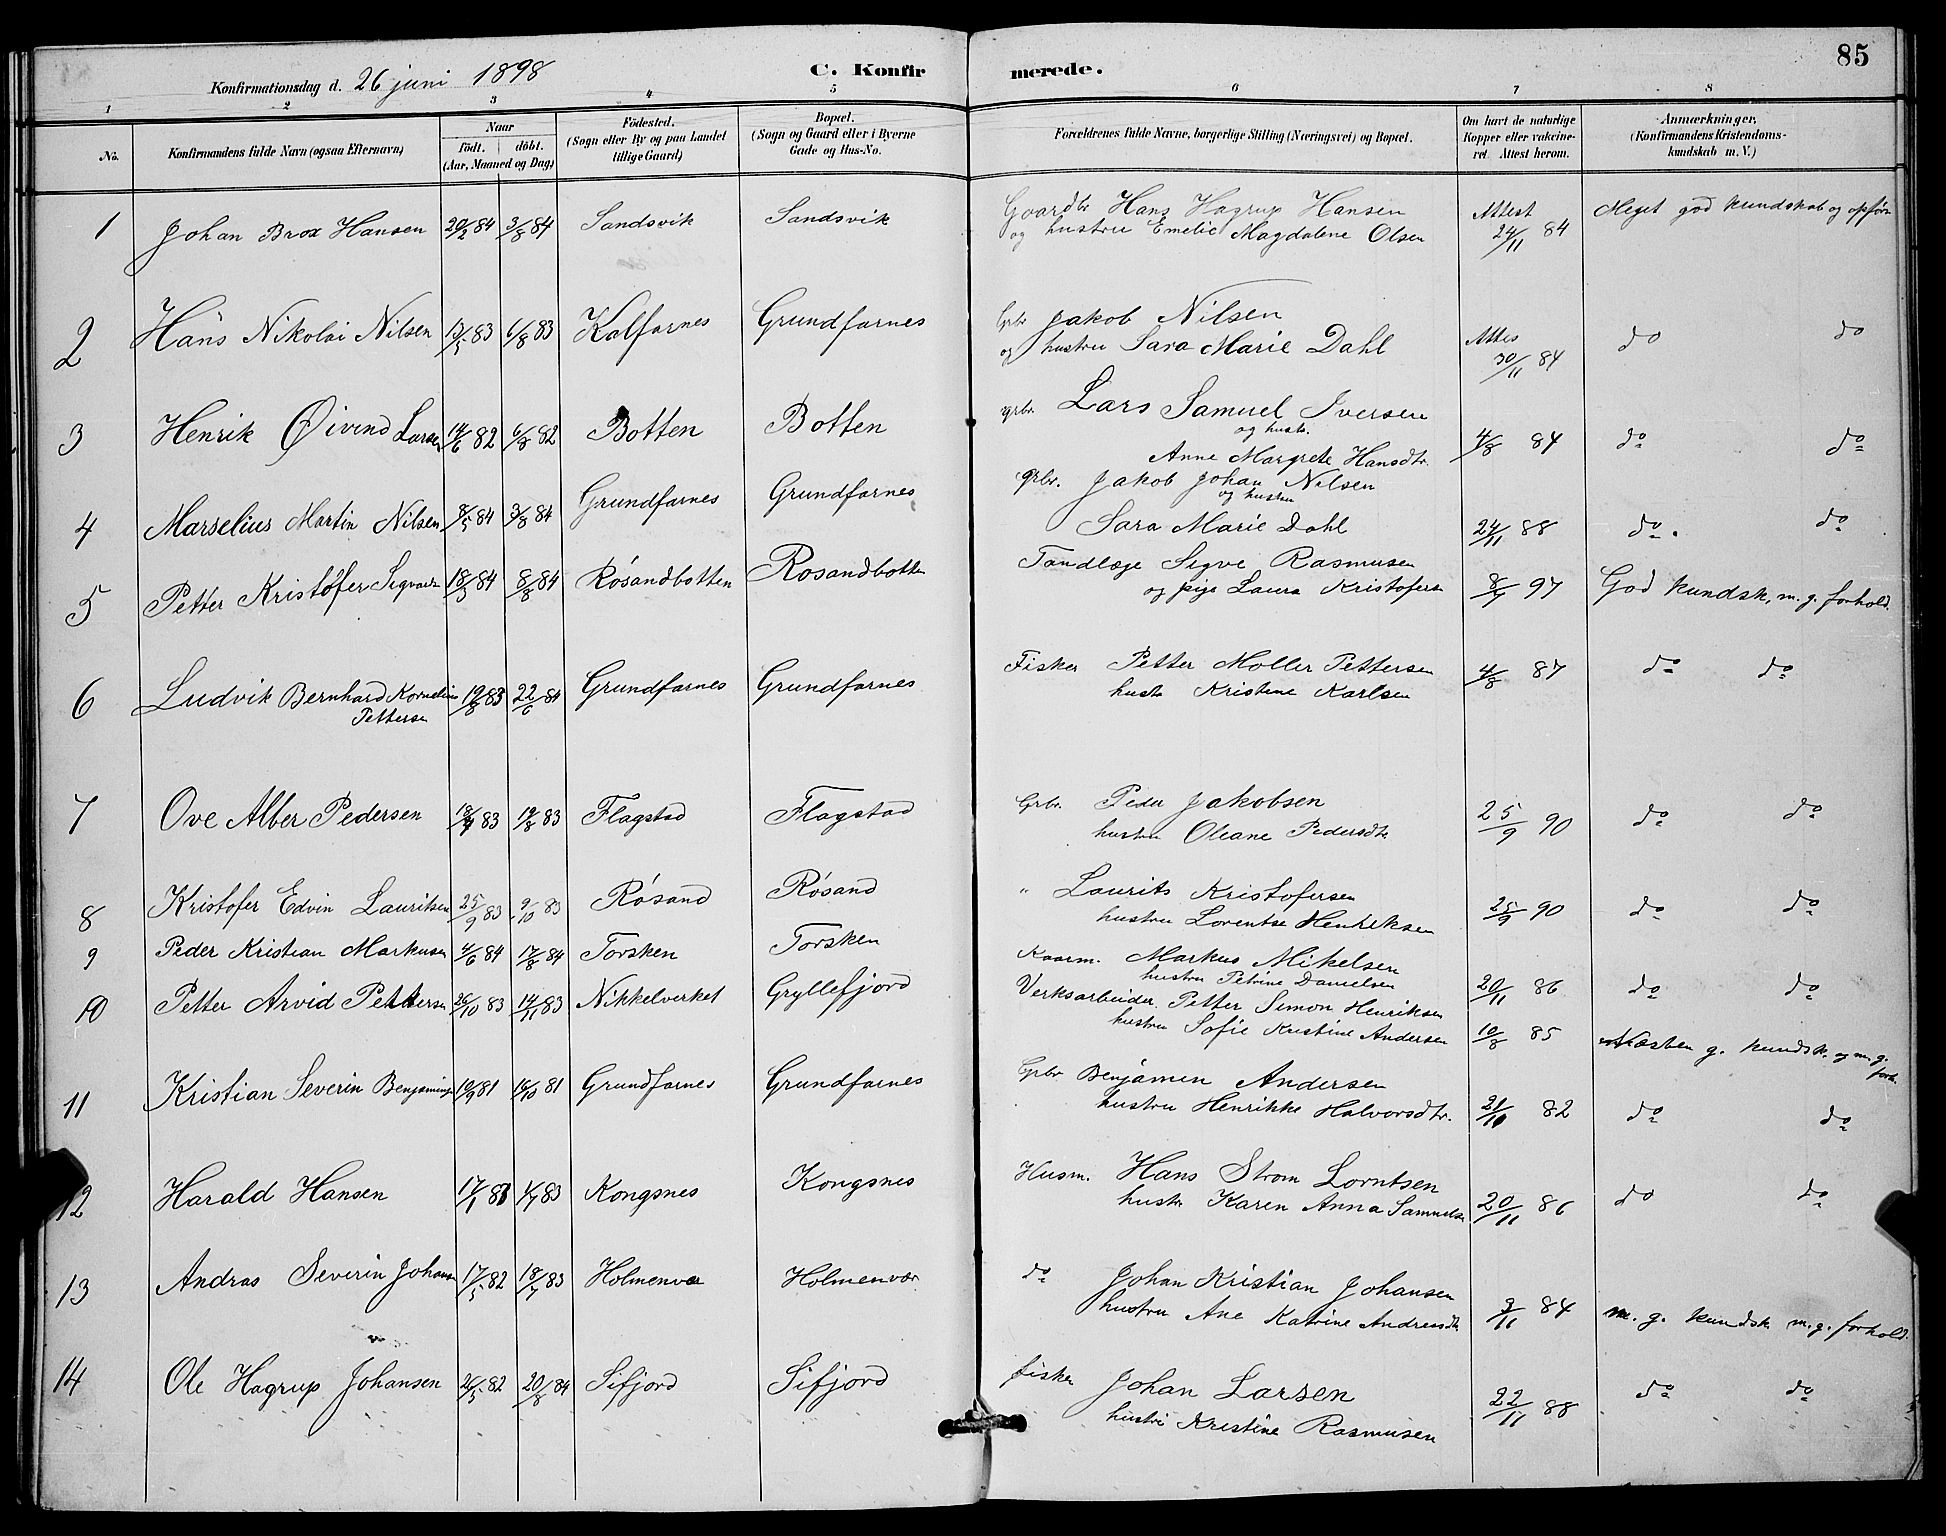 85
Konfirmationsdag d. 26 juni 1898
C. Konfirmerede.
1 2 3 4 5 6 7 8
No. Konfirmandens fulde Navn (ogsaa Efternavn) Naar født. døbt. (Aar, Maaned og Dag) Fødested. (Sogn eller By og paa Landet tillige Gaard) Bopæl. (Sogn og Gaard eller i Byerne Gade og Hus-No. Forældrenes fulde Navne, borgerlige Stilling (Næringsvei) og Bopæl. Om havt de naturlige Kopper eller vakcineret. Attest herom. Anmærkninger. (Konfirmandens Kristendomskundskab m. V.)
1 Johan Brox Hansen 29/2 84 3/8 84 Sandsvik Sandsvik Gaardbr Hans Hagrup Hansen Attest Meget god kundskab og opførs
og hustru Emelie Magdalene Olsen 24/11 84
2 Hans Nikolai Nilsen 13/5 83 6/8 83 Kalfarnes Grundfarnes Grbr Jakob Nilsen Attes do do
og hustru Sara Marie Dahl 30/11 84
3 Henrik Øivind Larsen 14/6 82 6/8 82 Botten Botten grbr. Lars Samuel Iversen
og hustr. 4/8 84 do do
Anne Margrete Hansdtr.
4 Marselius Martin Nilsen 8/5 84 3/8 84 Grundfarnes Grundfarnes grbr. Jakob Johan Nilsen
og hustru
Sara Marie Dahl 24/11 88 do. do
5 Petter Kristofer 18/3 84 8/8 84 Røsandbotten Rosandbotten Tandlæge Sigve Rasmusen
og pige Laura Kristofersen 8/7 97 God kundsk, m. g. forhold.
6 Ludvik Bernhard Kornelius 19/8 83 22/6 84 Grundfarnes Grundfarnes Fisker Petter Moller Pettersen 4/8 87 do do
Pettersen hustr Kristine Karlsen
7 Ove Alber Pedersen 18/4 83 19/8 83 Flagstad Flagstad Grbr. Peder Jakobsen 25/9 90 do do
hustru Oleane Pedersdtr
8 Kristofer Edvin Lauritsen 25/9 83 9/10 83 Røsand Røsand " Laurits Kristofersen 25/9 90 do do
hustru Lorentse Henriksen
9 Peder Kristian Markusen 4/6 84 17/8 84 Torsken Torsken Kaarm. Markus Mikelsen
hustru Petrine Danielsen 20/11 86 do do
10 Petter Arvid Pettersen 26/10 83 14/11 83 Nikkelverket Gryllefjord Verksarbeider Petter Simon Henriksen
hustru Sofie Kristine Andersen 10/8 85 Næsten g. kundsk. og m. g. forh.
11 Kristian Severin Benjaminsen 19/9 81 16/10 81 Grundfarnes Grundfarnes Grbr Benjamen Andersen
hustru Henrikke Halvorsdtr. 21/10 82 do do
12 Harald Hansen 17/1 83 1/7 83 Kongsnes Kongsnes Husm. Hans Strøm Lorntsen
hustr Karen Anna Samuelse 20/11 86 do do
13 Andras Severin Johansen 17/5 82 18/7 83 Holmenvær Holmenvær do Johan Kristian Johansen
hustru Ane Katrine Andreasdtr 9/11 84 m. g. kundsk m. g. forhold.
14 Ole Hagrup Johansen 21/5 82 20/8 84 Sifjord Sifjord fisker Johan Larsen do do
hustru Kristine Rasmusen 22/11 88